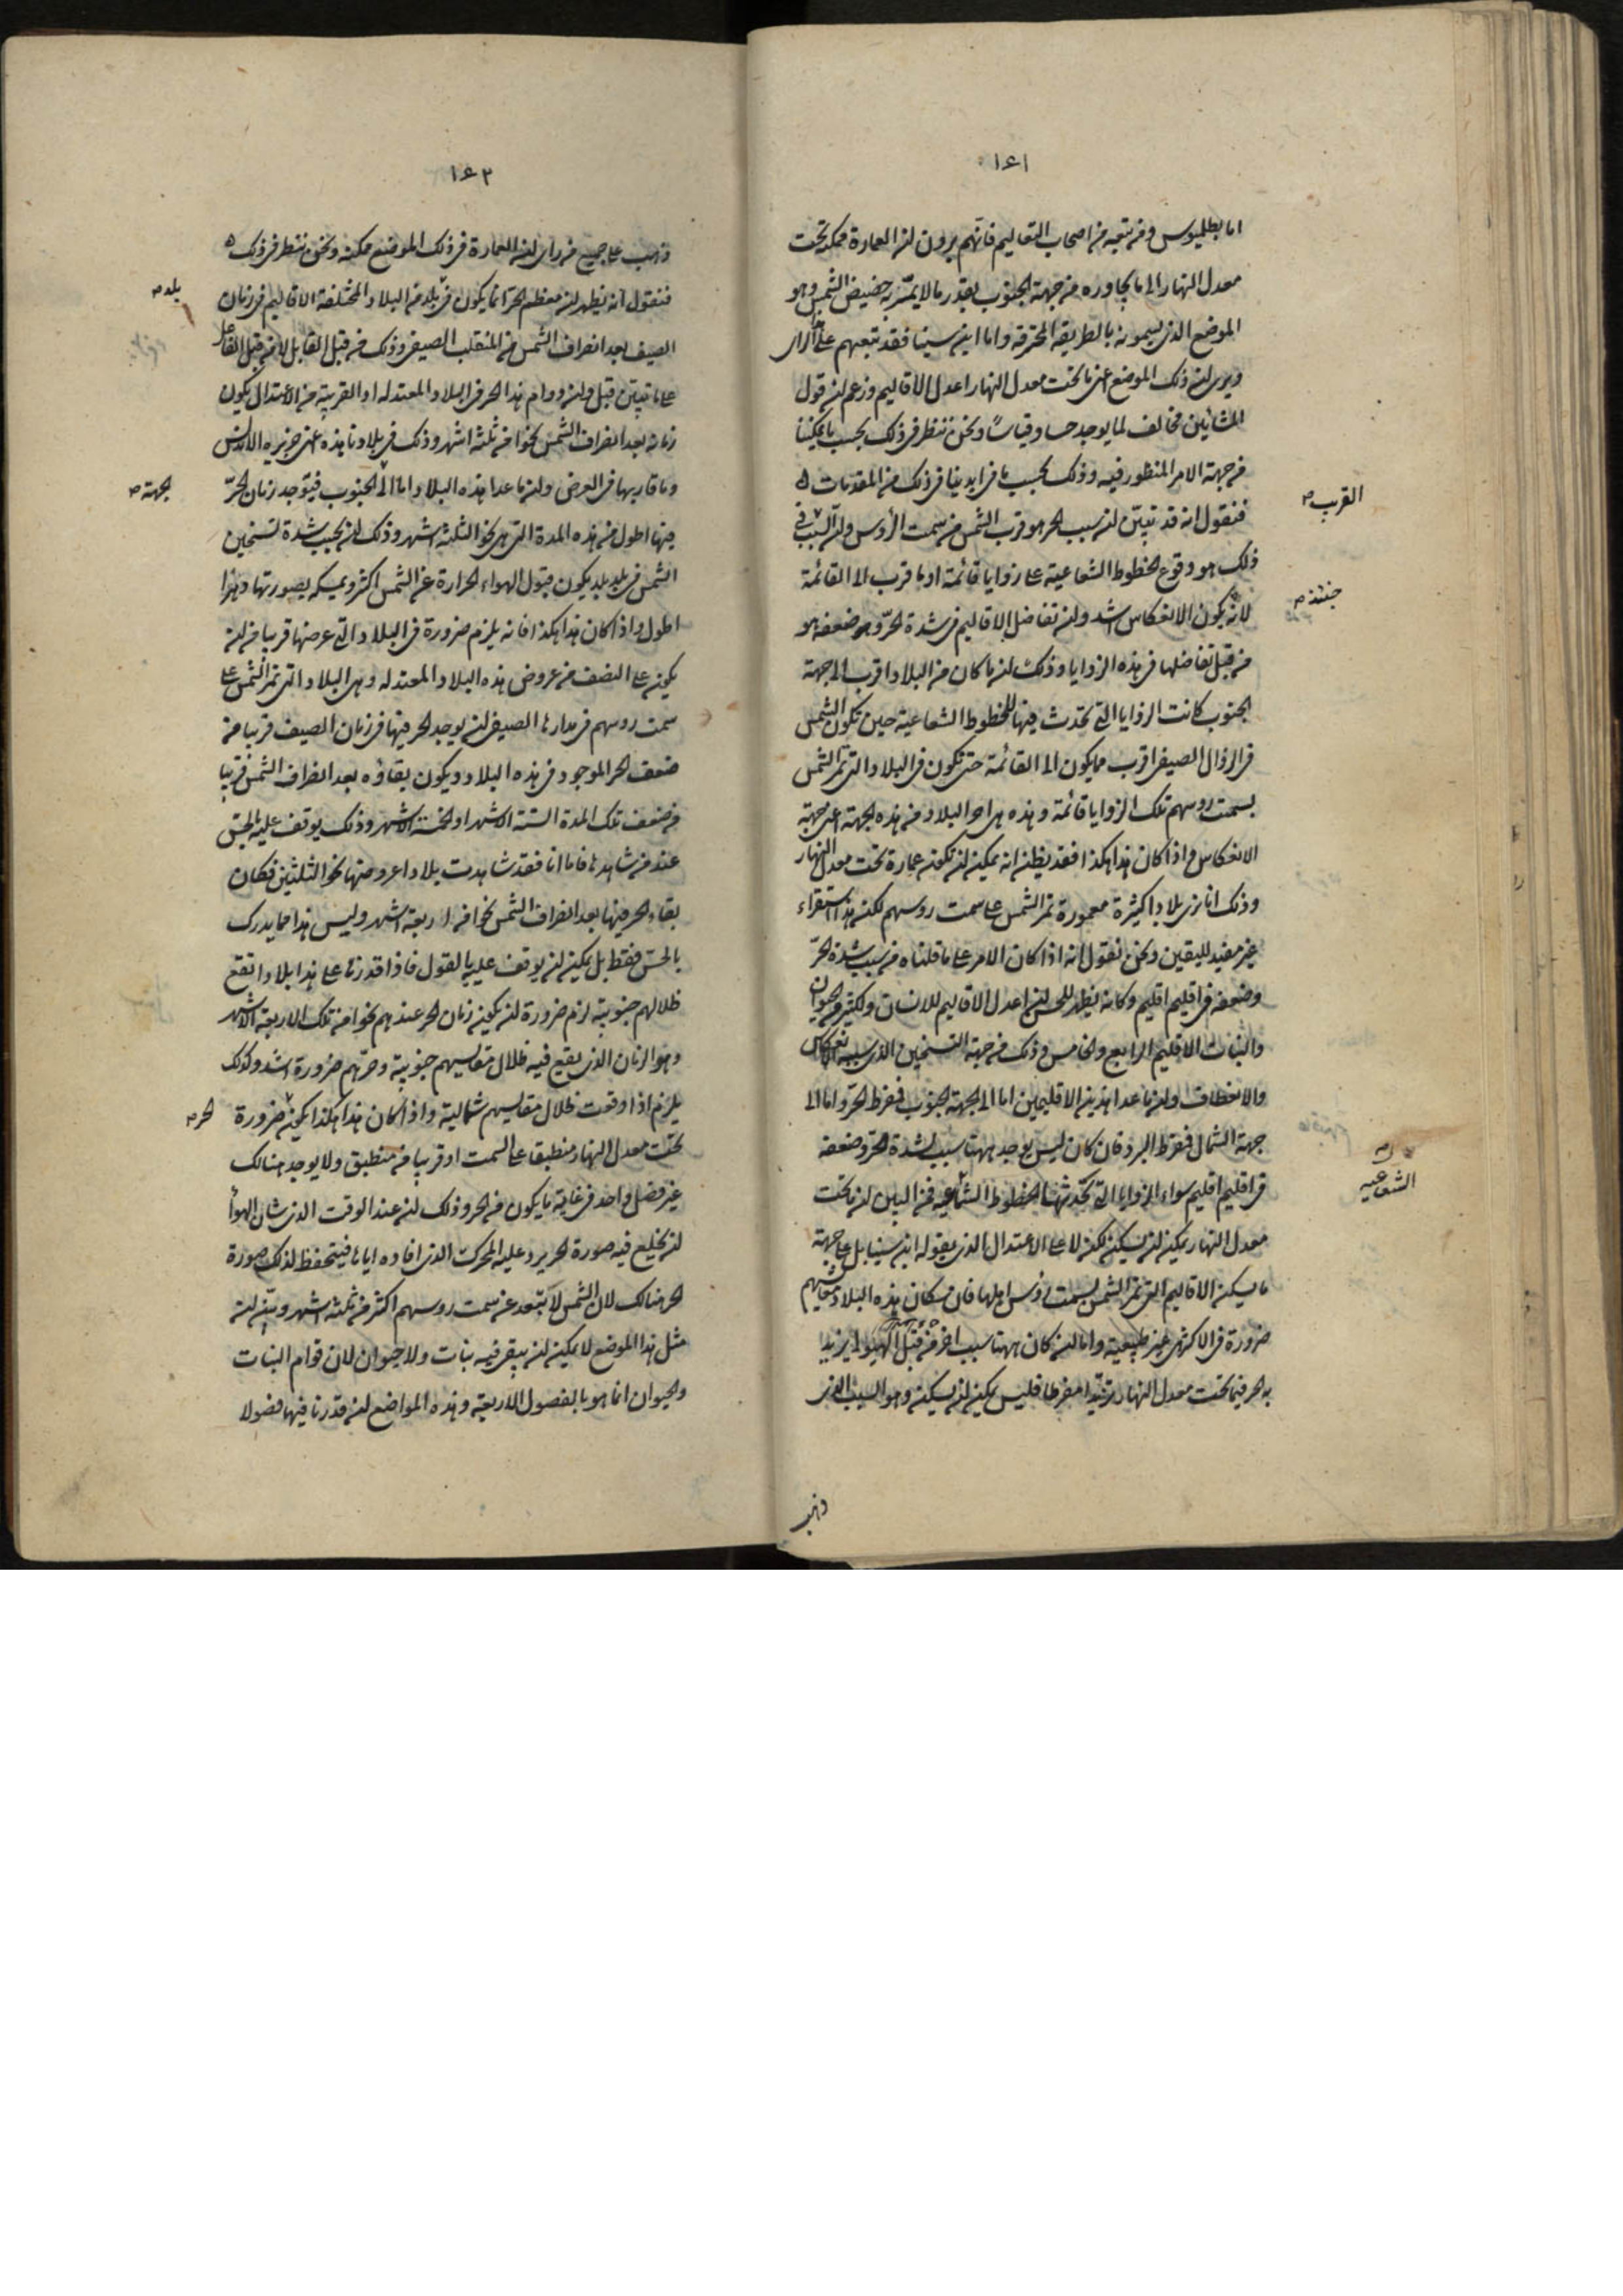 ١٤١
اما بطلميوس ومن تبعه من اصحاب التعاليم فانهم يرون ان العمارة ممكنة تحت
معدل النهار الى ما يجاوره من جهة الجنوب بقدر ما لا يمر به حضيض الشمس وهو
الموضع الذى يسمونه بالطريقة المحترقة واما ابن سينا فقد تبعهم على هذا الراى
ويرى ان ذلك الموضع اعنى ما تحت معدل النهار اعدل الاقاليم وزعم ان قول
المشائين مخالف لما يوجد حسا وقياسًا ونحن ننظر فى ذلك بحسب ما يمكننا
من جهة الامر المنظور فيه وذلك بحسب ما فى ايدينا فى ذلك من المقدمات
فنقول انه قد تبيّن ان سبب الحر هو قرب الشمس من سمت الرؤس وان السبب فى
ذلك هو وقوع الخطوط الشعاعية على زوايا قائمة او ما قرب الى القائمة
لانه يكون الانعكاس اشد وان تفاضل الاقاليم فى شدة الحرّ وضعفه هو
من قبل تفاضلها فى هذه الزوايا وذلك ان ما كان من البلاد اقرب الى جهة
الجنوب كانت الزوايا التى تحدث فيها للخطوط الشعاعية حين تكون الشمس
فى الزوال الصيفى اقرب مما يكون الى القائمة حتى تكون فى البلاد التى تمر الشمس
بسمت روسهم تلك الزوايا قائمة وهذه هى احر البلاد من هذه الجهة اعنى جهة
الانعكاس واذا كان هذا هكذا فقد يظن انه يمكن ان تكون عمارة تحت معدل النهار
وذلك انا نرى بلادا كثيرة معمورة تمر الشمس على سمت روسهم لكن هذا استقراء
غير مفيد لليقين ونحن نقول انه اذا كان الامر على ما قلناه من سبب شدة الحرّ
وضعفه فى اقليم اقليم وكان يظهر للحس ان اعدل الاقاليم للانسان ولكثير من الحيوان
والنبات الاقليم الرابع والخامس وذلك من جهة التسخين الذى سببه الانعكاس
والانعطاف وان ما عدا هذين الاقليمين اما الى جهة الجنوب فمفرط الحرّ واما الى
جهة الشمال فمفرط البرد فان كان ليس يوجد ههنا سبب لشدة الحرّ وضعفه
فى اقليم اقليم سواء الزوايا التى تحدثها الخطوط الشعاعية فمن البين ان ما تحت
معدل النهار يمكن ان يسكن لكن لا على الاعتدال الذى يقوله ابن سينا بل على جهة
ما يسكن الاقاليم التى تمر الشمس بسمت رؤس اهلها فان سكان هذه البلاد
ضرورة فى الاكثر هى غير طبيعية واما ان كان ههنا سبب اخر من قبل الهيولى يزيد
به الحر فيما تحت معدل النهار تزيّدا مفرطا فليس يمكن ان يسكن وهو السبب الذى
ذهب
القرب
حينئذ
الشعاعيه
١٤٢
ذهب على جميع من راى ان العمارة فى ذلك الموضع ممكنة ونحن ننظر فى ذلك
فنقول انه يظهر ان معظم الحرّ انما يكون فى بلد من البلاد المختلفة الاقاليم فى زمان
الصيف بعد انصراف الشمس من المنقلب الصيفى وذلك من قبل القابل لا من قبل الفاعل
على ما تبيّن قبل وان دوام هذا الحر فى البلاد المعتدله او القريبة من الاعتدال يكون
زمانه بعد انصراف الشمس نحوا من ثلثة اشهر وذلك فى بلادنا هذه اعنى جزيره الاندلس
وما قاربها فى العرض وان ما عدا هذه البلاد اما الى الجنوب فيوجد زمان الحرّ
فيها اطول من هذه المدة التى هى نحو الثلثة اشهر وذلك انه بحسب شدة تسخين
الشمس فى بلد بلد يكون قبول الهواء الحرارة عن الشمس اكثر وتمسكه بصورتها
اطول واذا كان هذا هكذا فانه يلزم ضرورة فى البلاد التى عرضها قريبا من ان
يكون على النصف من عروض هذه البلاد المعتدله وهى البلاد التى تمر الشمس على
سمت روسهم فى مدارها الصيفى ان يوجد الحر فيها فى زمان الصيف قريبا من
ضعف الحر الموجود فى هذه البلاد ويكون بقاؤه بعد انصراف الشمس قريبا
من ضعف تلك المدة الستة الاشهر او الخمسة الاشهر وذلك يوقف عليه بالحسّ
عند من شاهدها فاما انا فقد شاهدت بلادا عروضها نحو الثلثين فكان
بقاء الحر فيها بعد انصراف الشمس نحوا من اربعة اشهر وليس هذا مما يدرك
بالحسّ فقط بل يمكن ان يوقف عليه بالقول فاذا قدرنا على هذا بلادا تقع
ظلالهم جنوبية لزم ضرورة ان يكون زمان الحر عندهم نحوا من تلك الاربعة الاشهر
وهو الزمان الذى يقع فيه ظلال مقاييسهم جنوبية وحرهم ضرورة اشد وكذلك
يلزم اذا وقعت ظلال مقاييسهم شمالية واذا كان هذا هكذا يكون ضرورة
تحت معدل النهار منطبقا على السمت او قريبا من منطبق ولا يوجد هنالك
غير فصل واحد فى غاية ما يكون من الحر وذلك ان عند الوقت الذى شان الهواء
ان يخلع فيه صورة الحر يرد عليه المحرك الذى افاده اياها فيتحفظ لذلك صورة
الحر هنالك لان الشمس لا تبعد عن سمت روسهم اكثر من ثلثة اشهر وبيّن ان
مثل هذا الموضع لا يمكن ان يبقى فيه نبات ولا حيوان لان قوام النبات
والحيوان انما هو بالفصول الاربعة وهذه المواضع ان قدرنا فيها فصولا
بلد
لجهة
الحر